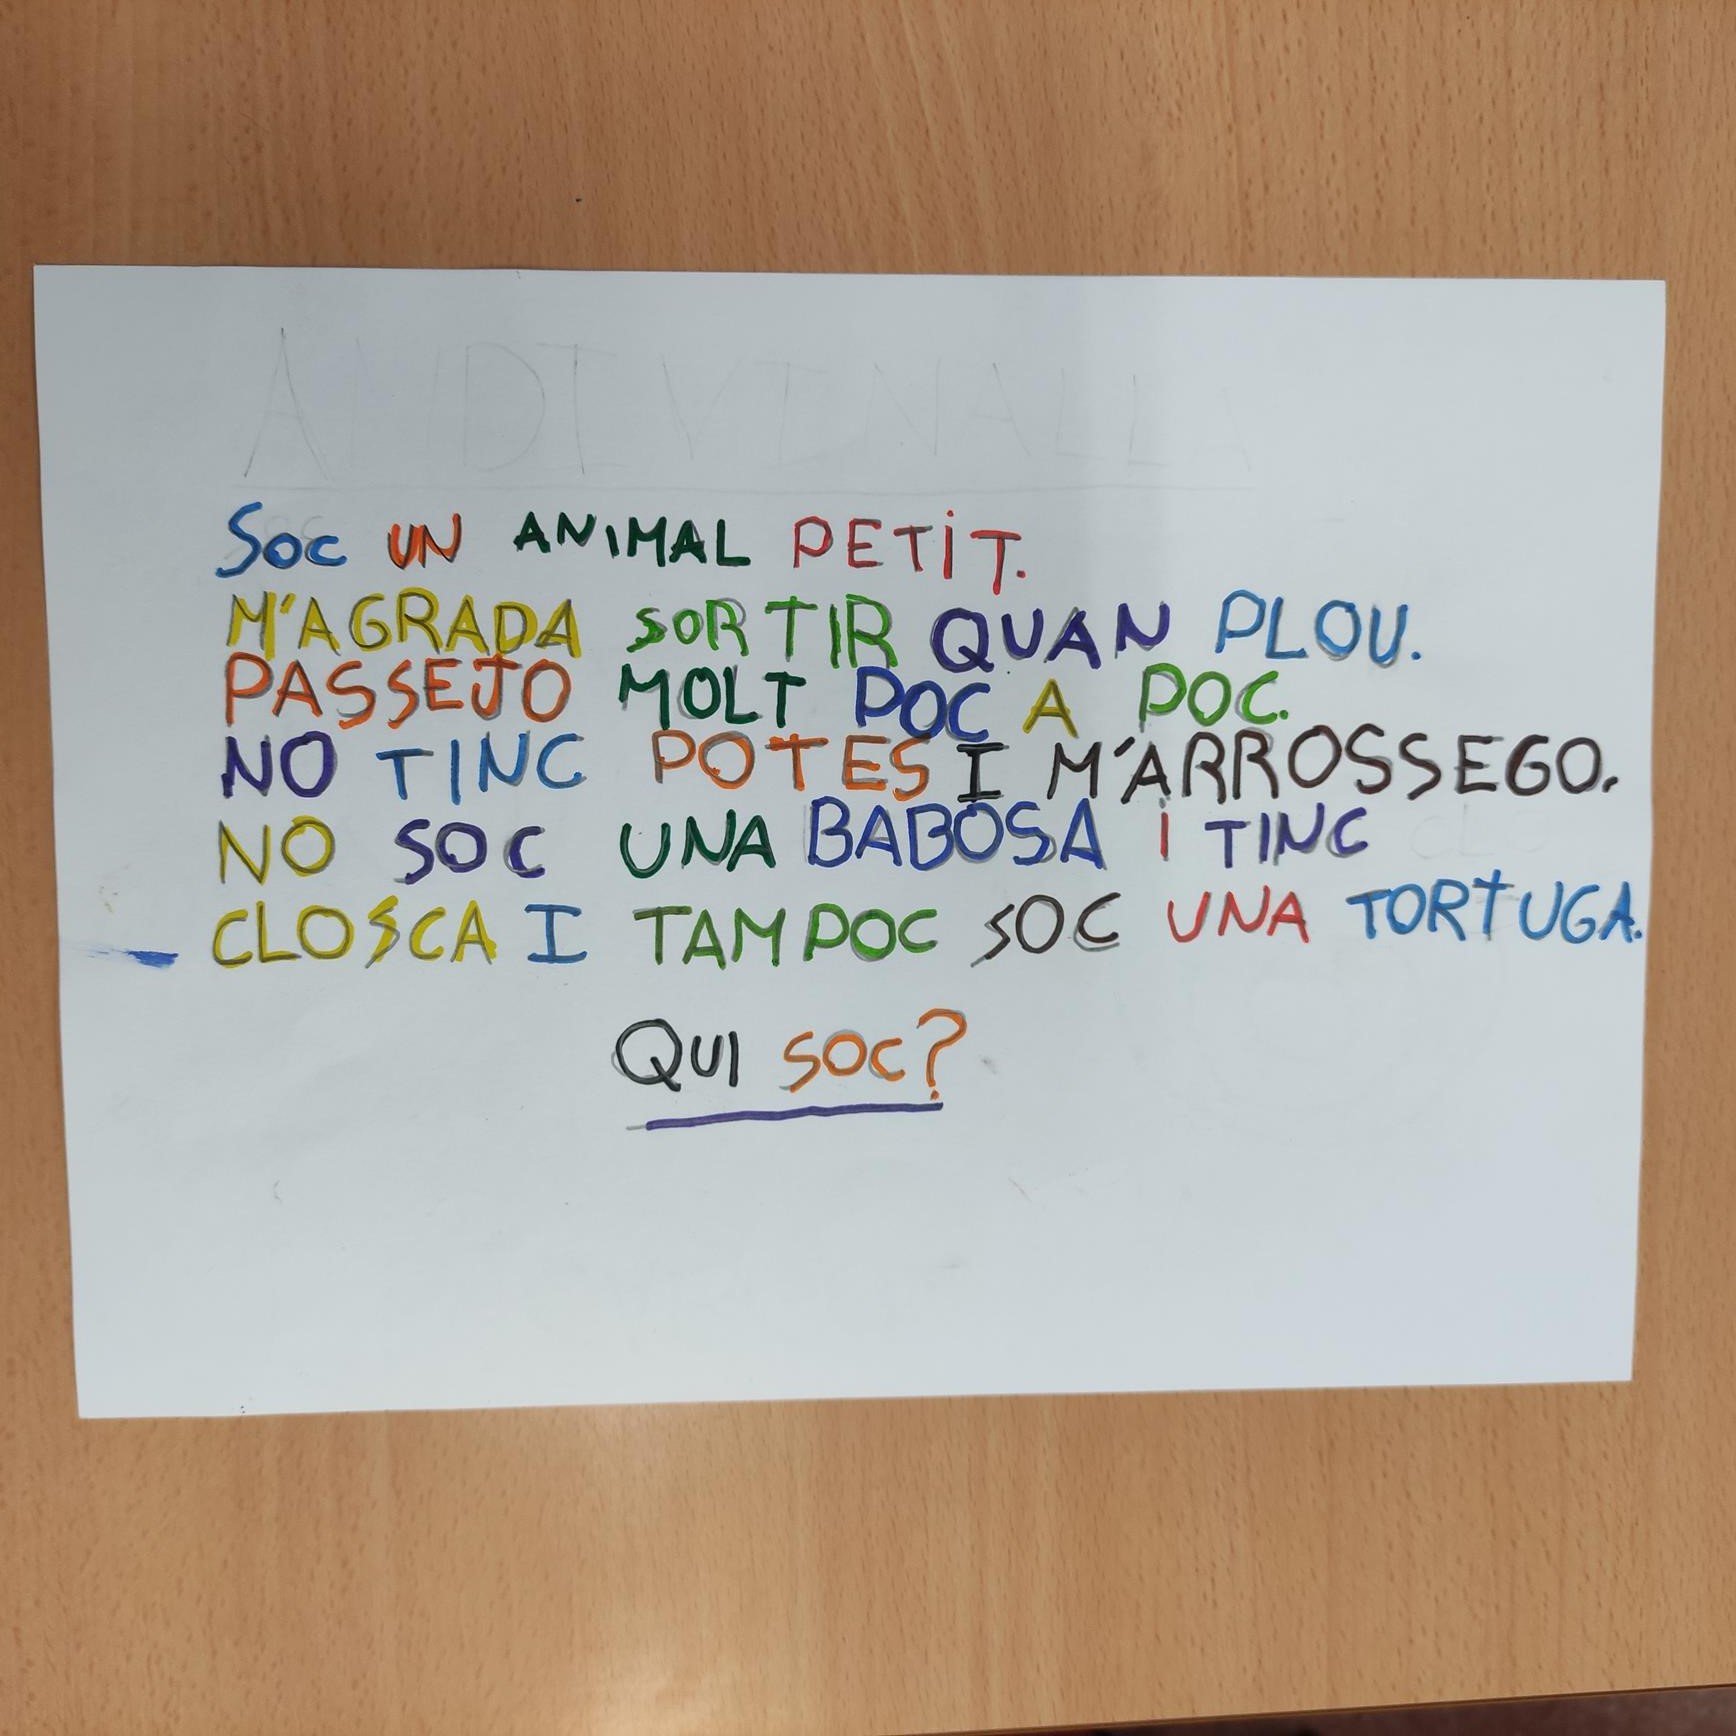 ANDIVINALLA
SOC UN ANIMAL PETIT.
M'AGRADA SORTIR QUAN PLOU.
PASSEJO MOLT POC A POC.
NO TINC POTES I M'ARROSSEGO.
NO SOC UNA BABOSA I TINC
CLOSCA I TAMPOC SOC UNA TORTUGA.
QUI SOC?